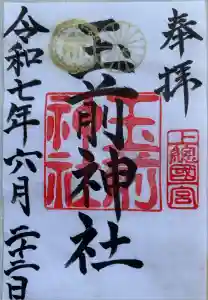 奉拝
上総國一宮
玉前神社
玉前神社
令和七年六月二十二日